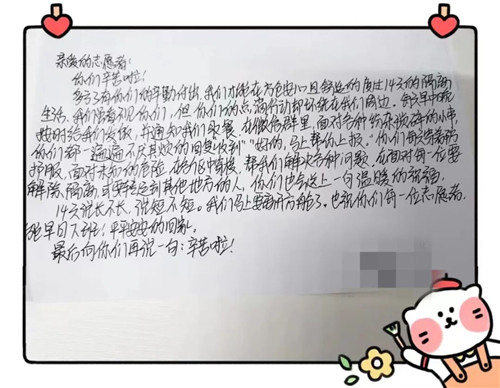 亲爱的志愿者：
你们辛苦啦！
多亏了有你们的辛勤付出，我们才能在方舱安心且舒适的度过14天的隔离
生活。我们虽看不见你们，但你们的点滴行动却环绕在我们周边。每天早中晚
按时给我们发饭，并通知我们取餐。在微信群里，面对各种纷杂琐碎的小事
你们都一遍遍不厌其烦的回复“收到”“好的，马上帮你上报”。你们每天穿着防
护服，面对未知的危险，在舱区中穿梭，帮我们解决各种问题。在面对每一位要
解除隔离或要转运到其他地方的人，你们也会送上一句温暖的祝福。
14天说长不长，说短不短。我们马上要离开方舱了。也祝你们每一位志愿者，
能早日下班，平平安安的回家。
最后向你们再说一句：辛苦啦！